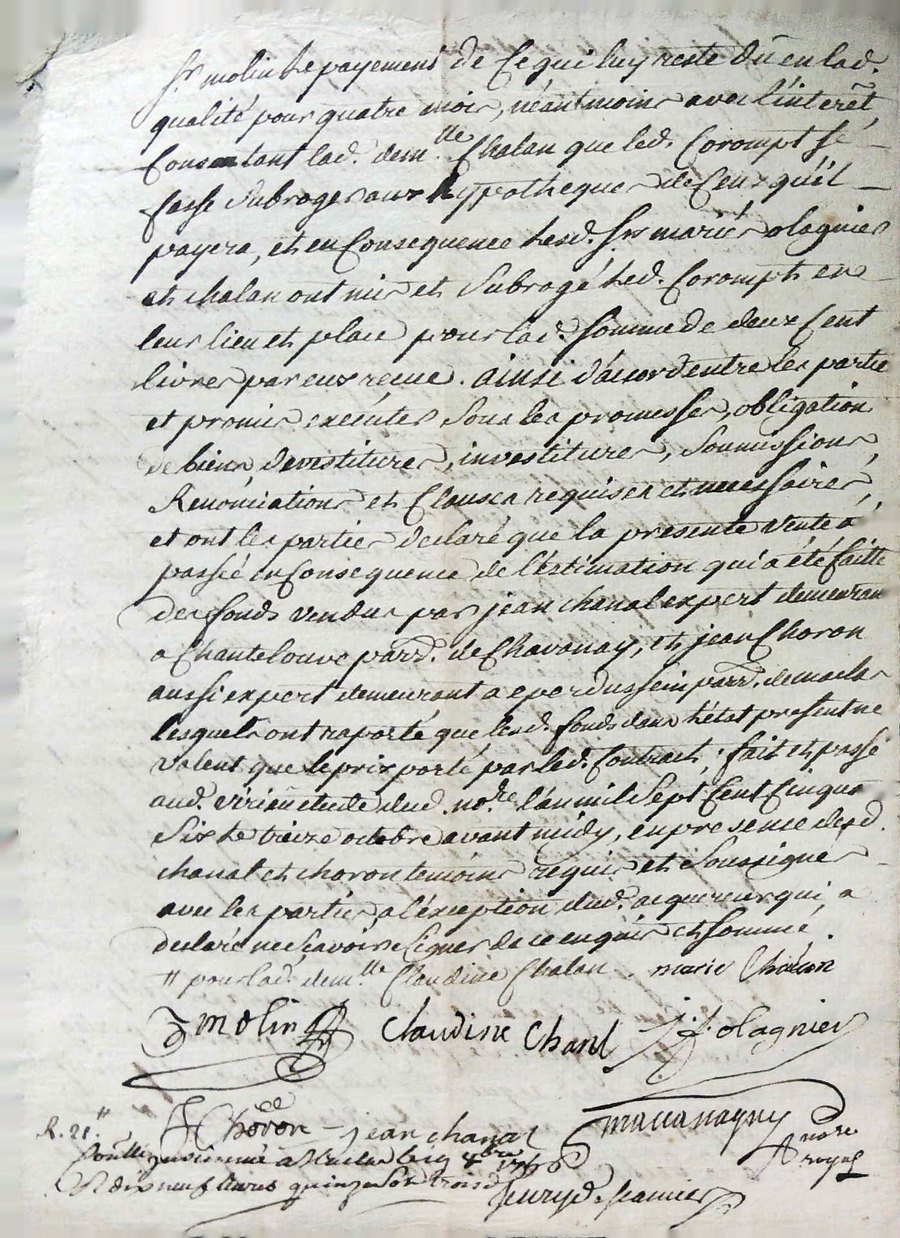 Sr. molin le payement de Ce qui luy reste dû en lad.
qualité pour quatre mois, néantmoins avec l'interêt,
Consentant lad. demlle Chalan que led. Corompt se
fasse Subroger aux hypotheques de Ceux qu'il
payera, et en Consequence lesd. Srs mariés olagnier
et chalan ont mis et Subrogé led. Corompt en
leur lieu et place pour lad. somme de deux Cent
livres par eux reçue. ainsi d'accord entre les partie
et promis exécuter Sous les promesses, obligation
de biens devestitures, investitures, Soumissions,
Renonciations et Clauses requises et necessaires,
et ont les parties declaré que la presente vente a
passée en Consequence de l'estimation qui a été faitte
des fonds vendus par jean chanal expert demeurant
a Chantelouve parr. de Chavanay, et jean Choron
aussi expert demeurant a eperdussein parr. de maclas
lesquels ont raporté que lesd. fonds dans l'état present ne
valent que le prix porté par led. Contract; fait et passé
aud. virieu etude dud. nore l'an mil Sept Cent Cinqte
Six le treize octobre avant midy, en presence desd.
chanal et choron temoins requis et Soussignés
avec les parties a l'exception dud. acquereur qui a
declaré ne Sçavoir Signer de ce enquis et Sommé.
// pour lad. demlle Claudine Chalan. marie Chalan
molin Claudine Chanl olagnier
Choron jean chanal
R. 21 nore
royal
neuf livres quinze sol trois d.